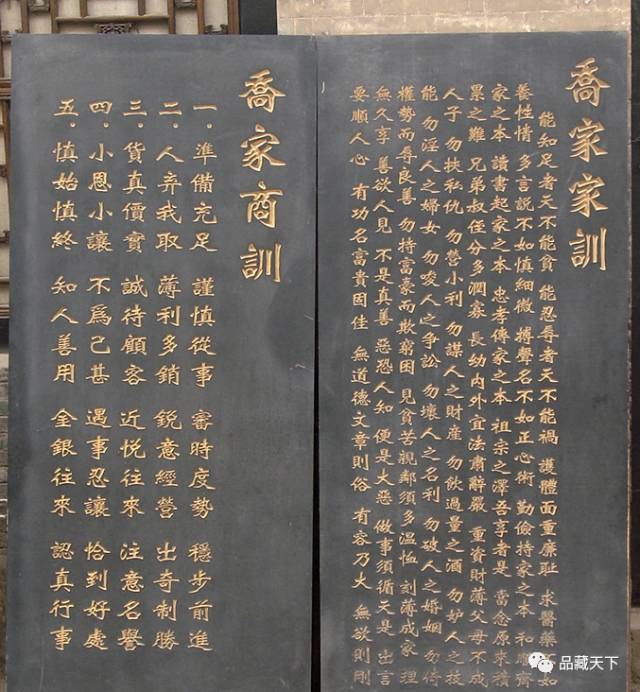 喬家家訓
能知足者天不能貧 能忍辱者天不能禍 護體面重廉耻 求醫藥不如
養性情 多言説不如慎細微 搏聲名不如正心術 勤儉持家之本 和順齊
家之本 讀書起家之本 忠孝傳家之本 祖宗之澤吾享者是 當念原来積
累之難 兄弟叔侄分多潤寡 長幼内外宜法肅辭嚴 重資財薄父母不成
人子 勿挾私仇 勿營小利 勿謀人之財産 勿飲過量之酒 勿妒人之技
能 勿淫人之婦女 勿唆人之争訟 勿壞人之名利 勿破人之婚姻 勿倚
權勢而辱良善 勿恃富豪而欺窮困 見貧苦親鄰須多温恤 刻薄成家 理
無久享 善欲人見 不是真善 惡恐人知 便是大惡 做事須循天是 出言
要順人心 有功名富貴固佳 無道德文章則俗 有容乃大 無欲則剛
喬家商訓
一. 準備充足 謹慎從事 審時度勢 穩步前進
二. 人弃我取 薄利多銷 鋭意經營 出奇制勝
三. 貨真價實 誠待顧客 近悦往来 注意名譽
四. 小恩小讓 不爲己甚 遇事忍讓 恰到好處
五. 慎始慎終 知人善用 金銀往来 認真行事
品藏天下